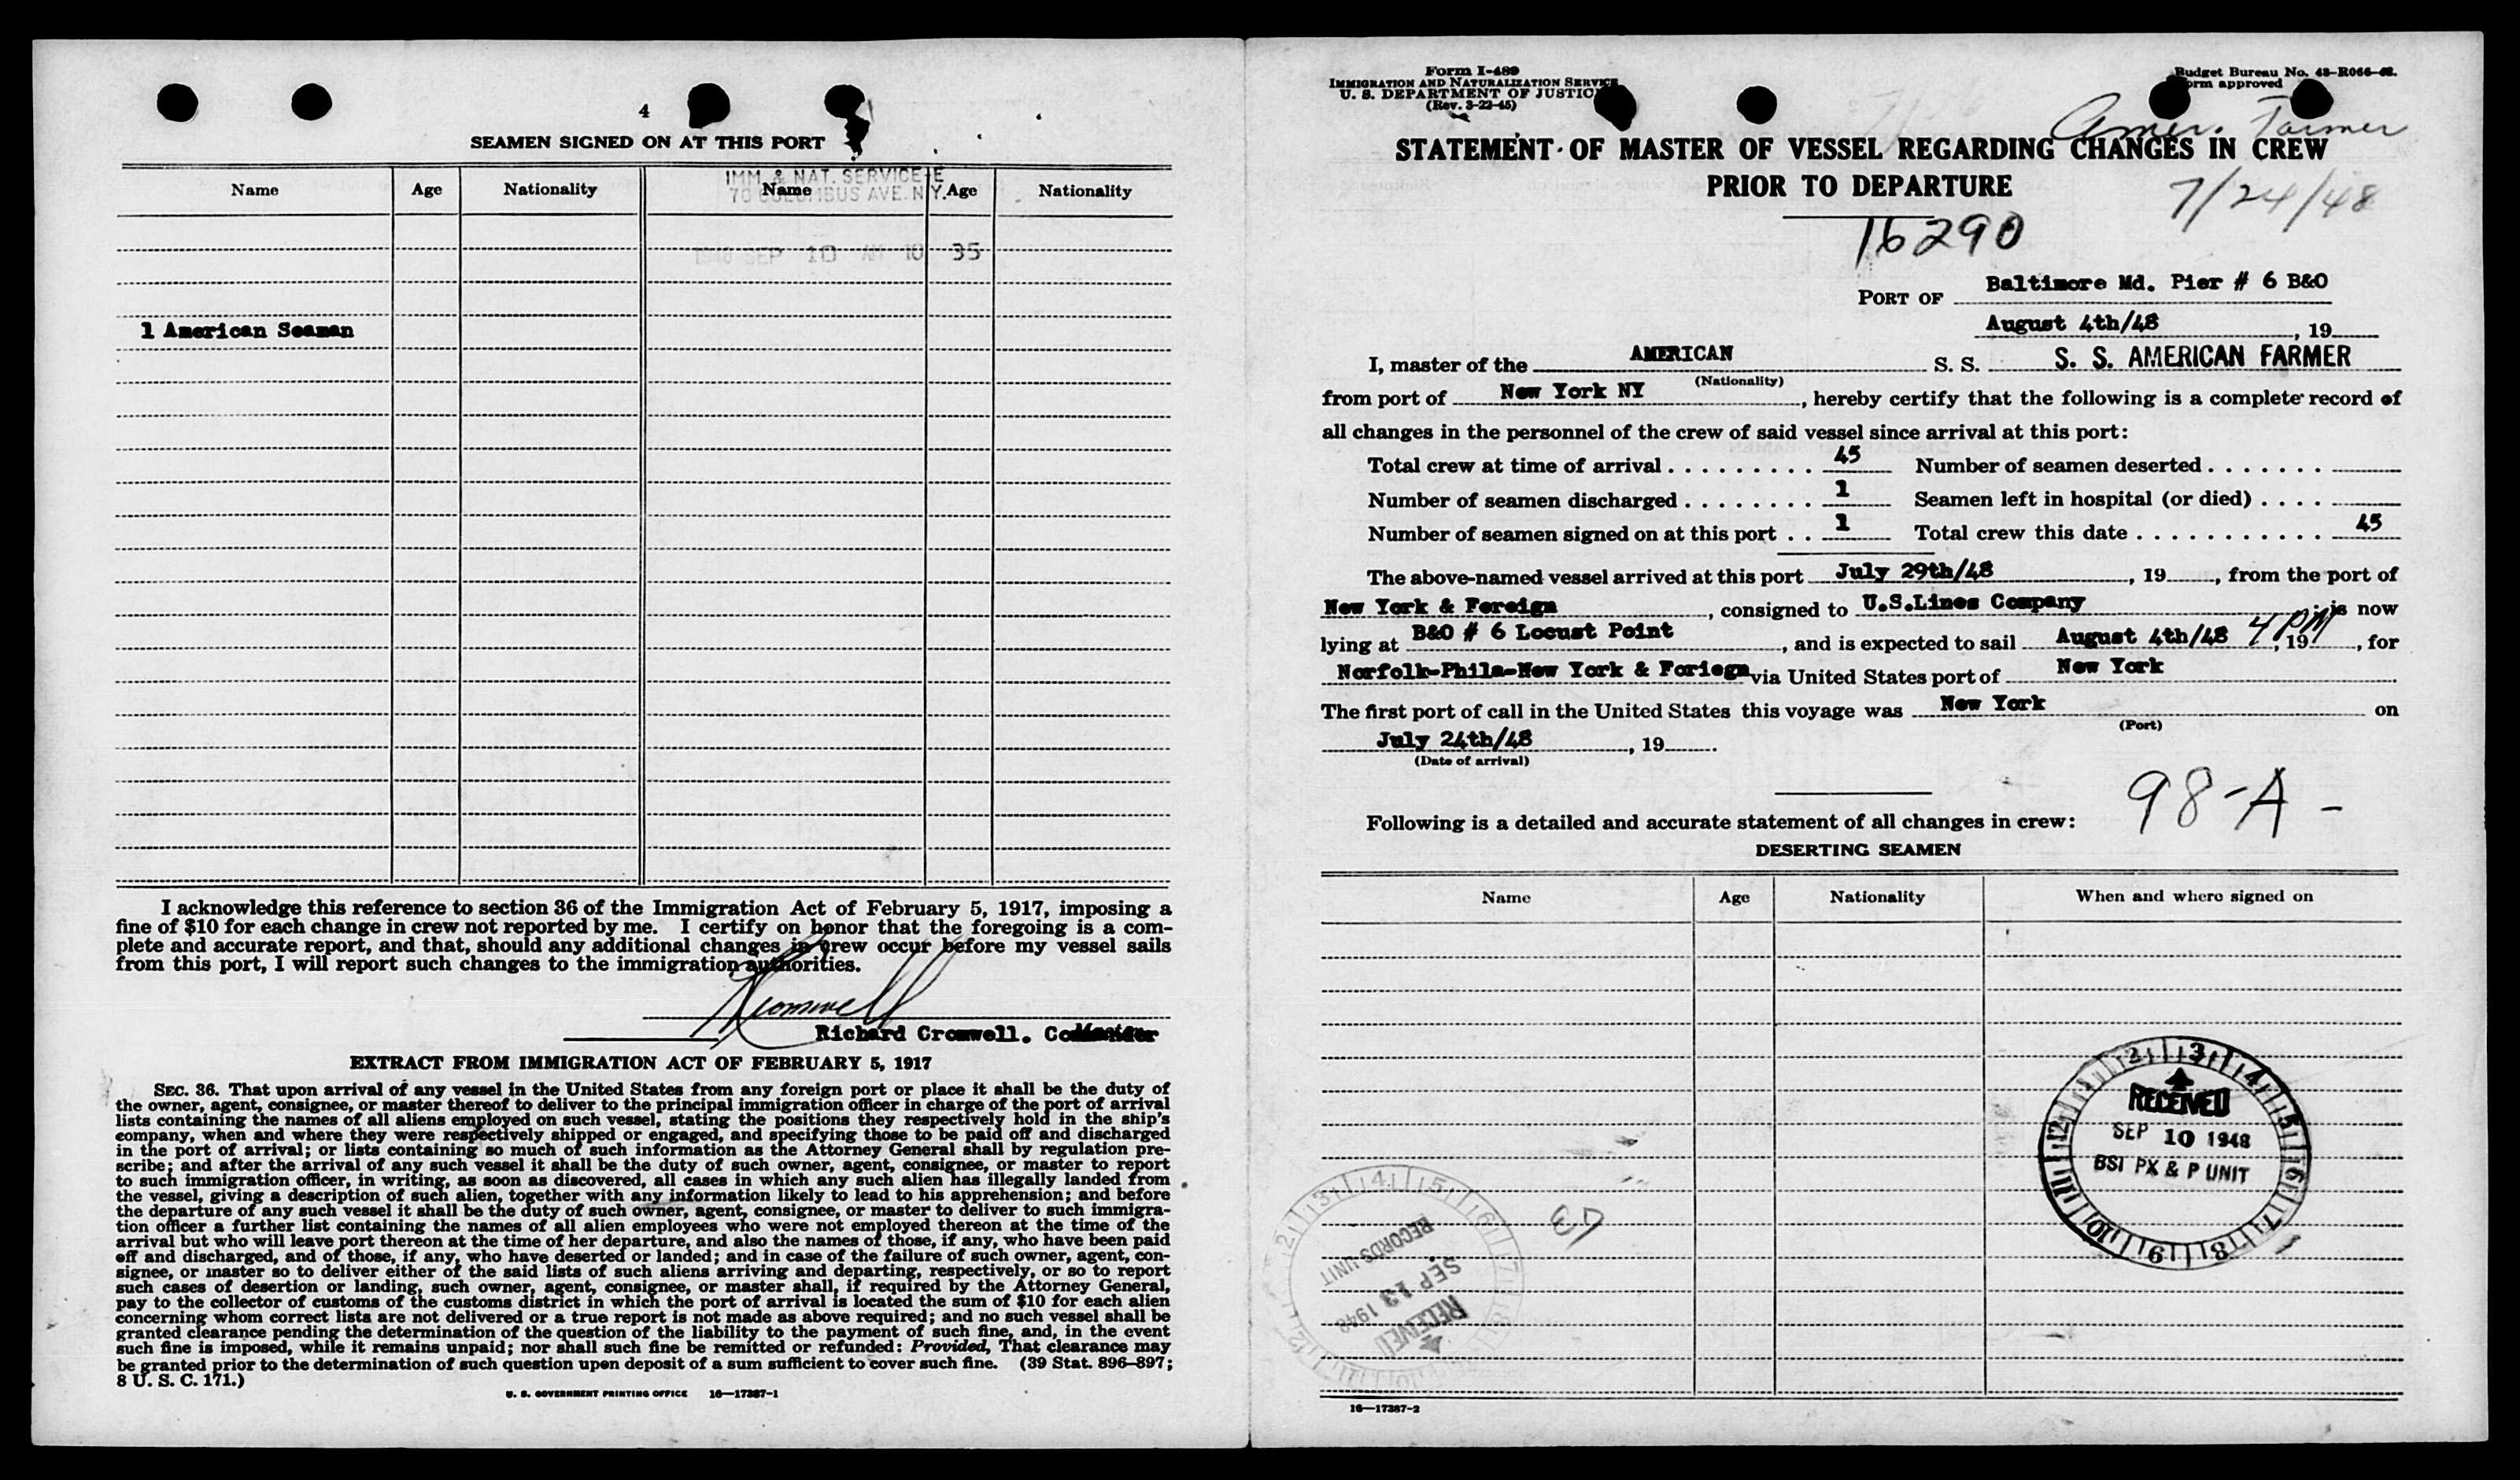 4
SEAMEN SIGNED ON AT THIS PORT
IMM. & NAT. SERVICE
70 COLUMBUS AVE. N.Y.
Name Age Nationality Name Age Nationality
1948 SEP 10 AM 10 35
1 American Seaman
I acknowledge this reference to section 36 of the Immigration Act of February 5, 1917, imposing a
fine of $10 for each change in crew not reported by me. I certify on honor that the foregoing is a com-
plete and accurate report, and that, should any additional changes in crew occur before my vessel sails
from this port, I will report such changes to the immigration authorities.
Cromwell
Richard Cromwell.
EXTRACT FROM IMMIGRATION ACT OF FEBRUARY 5, 1917
SEC. 36. That upon arrival of any vessel in the United States from any foreign port or place it shall be the duty of
the owner, agent, consignee, or master thereof to deliver to the principal immigration officer in charge of the port of arrival
lists containing the names of all aliens employed on such vessel, stating the positions they respectively hold in the ship's
company, when and where they were respectively shipped or engaged, and specifying those to be paid off and discharged
in the port of arrival; or lists containing so much of such information as the Attorney General shall by regulation pre-
scribe; and after the arrival of any such vessel it shall be the duty of such owner, agent, consignee, or master to report
to such immigration officer, in writing, as soon as discovered, all cases in which any such alien has illegally landed from
the vessel, giving a description of such alien, together with any information likely to lead to his apprehension; and before
the departure of any such vessel it shall be the duty of such owner, agent, consignee, or master to deliver to such immigra-
tion officer a further list containing the names of all alien employees who were not employed thereon at the time of the
arrival but who will leave port thereon at the time of her departure, and also the names of those, if any, who have been paid
off and discharged, and of those, if any, who have deserted or landed; and in case of the failure of such owner, agent, con-
signee, or master so to deliver either of the said lists of such aliens arriving and departing, respectively, or so to report
such cases of desertion or landing, such owner, agent, consignee, or master shall, if required by the Attorney General,
pay to the collector of customs of the customs district in which the port of arrival is located the sum of $10 for each alien
concerning whom correct lists are not delivered or a true report is not made as above required; and no such vessel shall be
granted clearance pending the determination of the question of the liability to the payment of such fine, and, in the event
such fine is imposed, while it remains unpaid; nor shall such fine be remitted or refunded: Provided, That clearance may
be granted prior to the determination of such question upon deposit of a sum sufficient to cover such fine. (39 Stat. 896–897;
8 U. S. C. 171.)
U. S. GOVERNMENT PRINTING OFFICE 16—17387-1
Form I-489
IMMIGRATION AND NATURALIZATION SERVICE
U. S. DEPARTMENT OF JUSTICE
(Rev. 3-22-45)
Budget Bureau No. 43-R066-42.
Form approved
Amer. Farmer
STATEMENT OF MASTER OF VESSEL REGARDING CHANGES IN CREW
PRIOR TO DEPARTURE
7/24/48
16290
PORT OF Baltimore Md. Pier # 6 B&O
August 4th/48, 19
I, master of the AMERICAN S. S. S. S. AMERICAN FARMER
(Nationality)
from port of New York NY, hereby certify that the following is a complete record of
all changes in the personnel of the crew of said vessel since arrival at this port:
Total crew at time of arrival . . . . . . . . . 45 Number of seamen deserted . . . . . . .
Number of seamen discharged . . . . . . . . 1 Seamen left in hospital (or died) . . . .
Number of seamen signed on at this port . . 1 Total crew this date . . . . . . . . . . . 45
The above-named vessel arrived at this port July 29th/48, 19, from the port of
New York & Foreign, consigned to U.S.Lines Company; is now
lying at B&O # 6 Locust Point, and is expected to sail August 4th/48 4 PM, 19, for
Norfolk-Phila-New York & Foriegn via United States port of New York
The first port of call in the United States this voyage was New York on
(Port)
July 24th/48, 19.
(Date of arrival)
98-A-
Following is a detailed and accurate statement of all changes in crew:
DESERTING SEAMEN
Name Age Nationality When and where signed on
RECEIVED
SEP 10 1948
BSI PX & P UNIT
RECEIVED
SEP 13 1948
RECORDS UNIT
16—17387-2